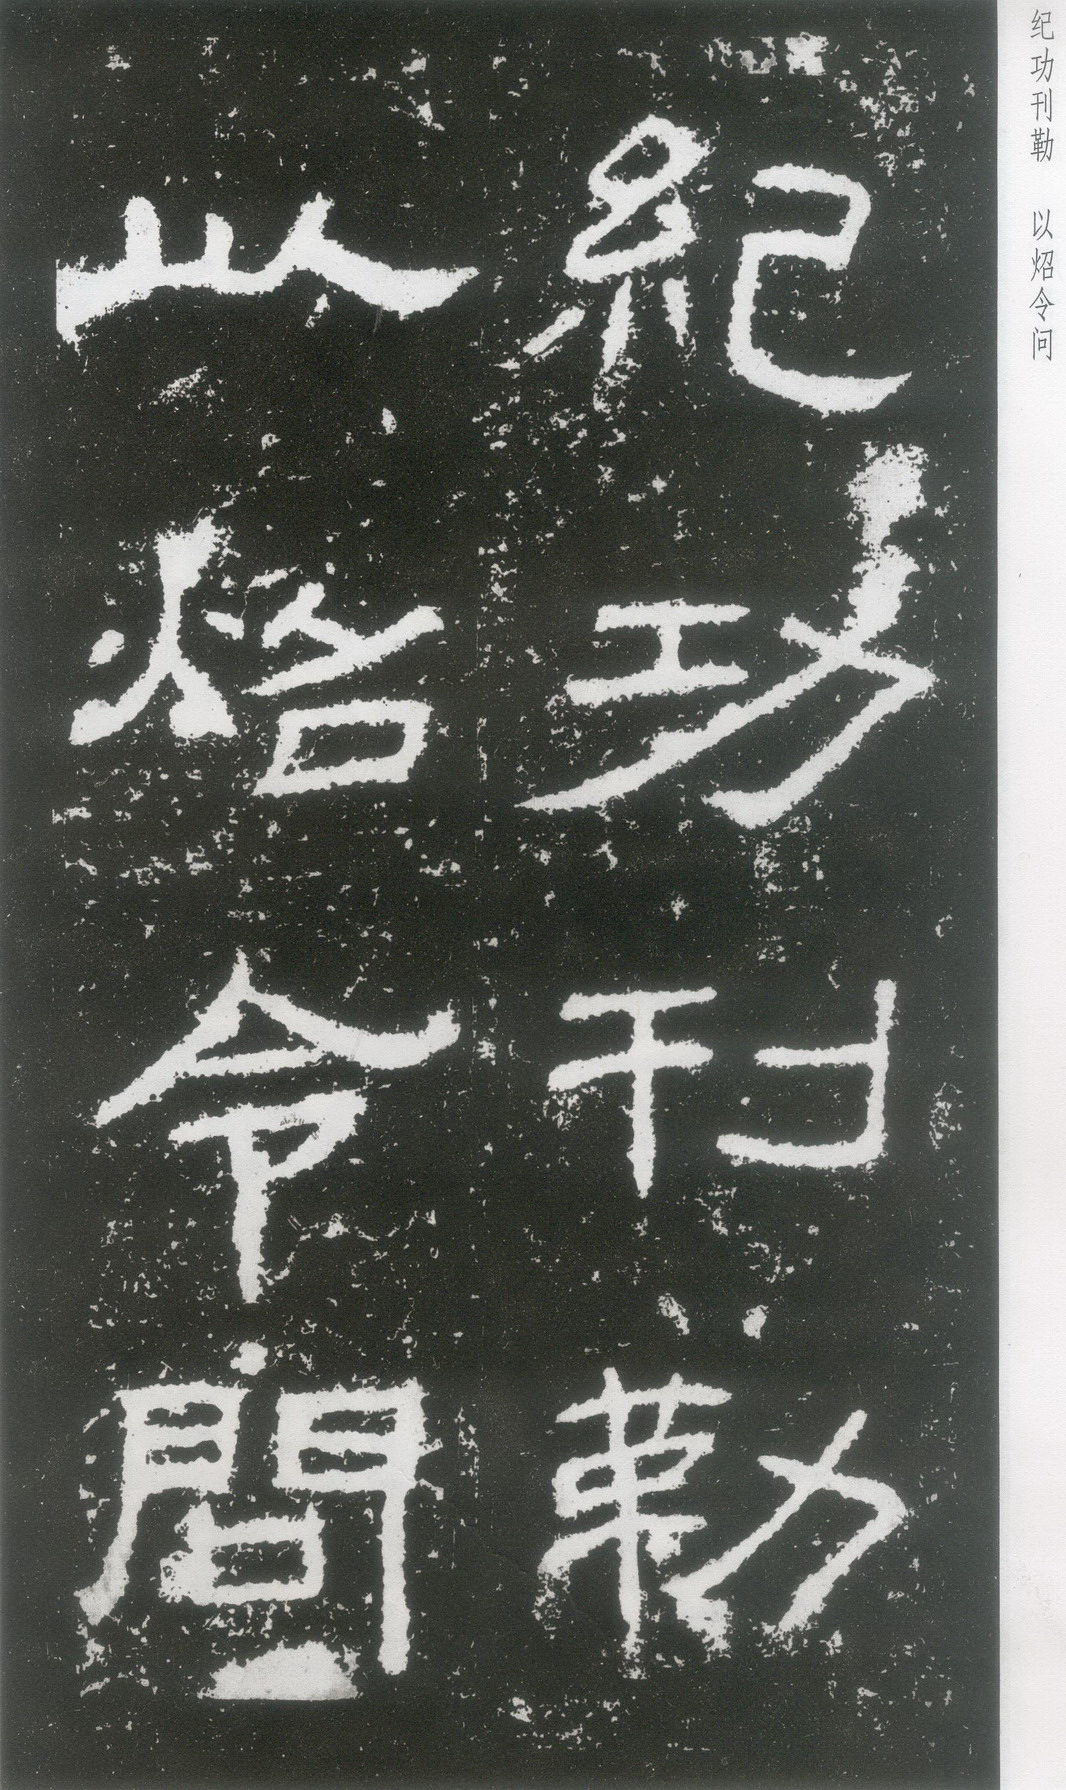 纪功刊勒 以炤令问
紀功刊勒
以炤令問